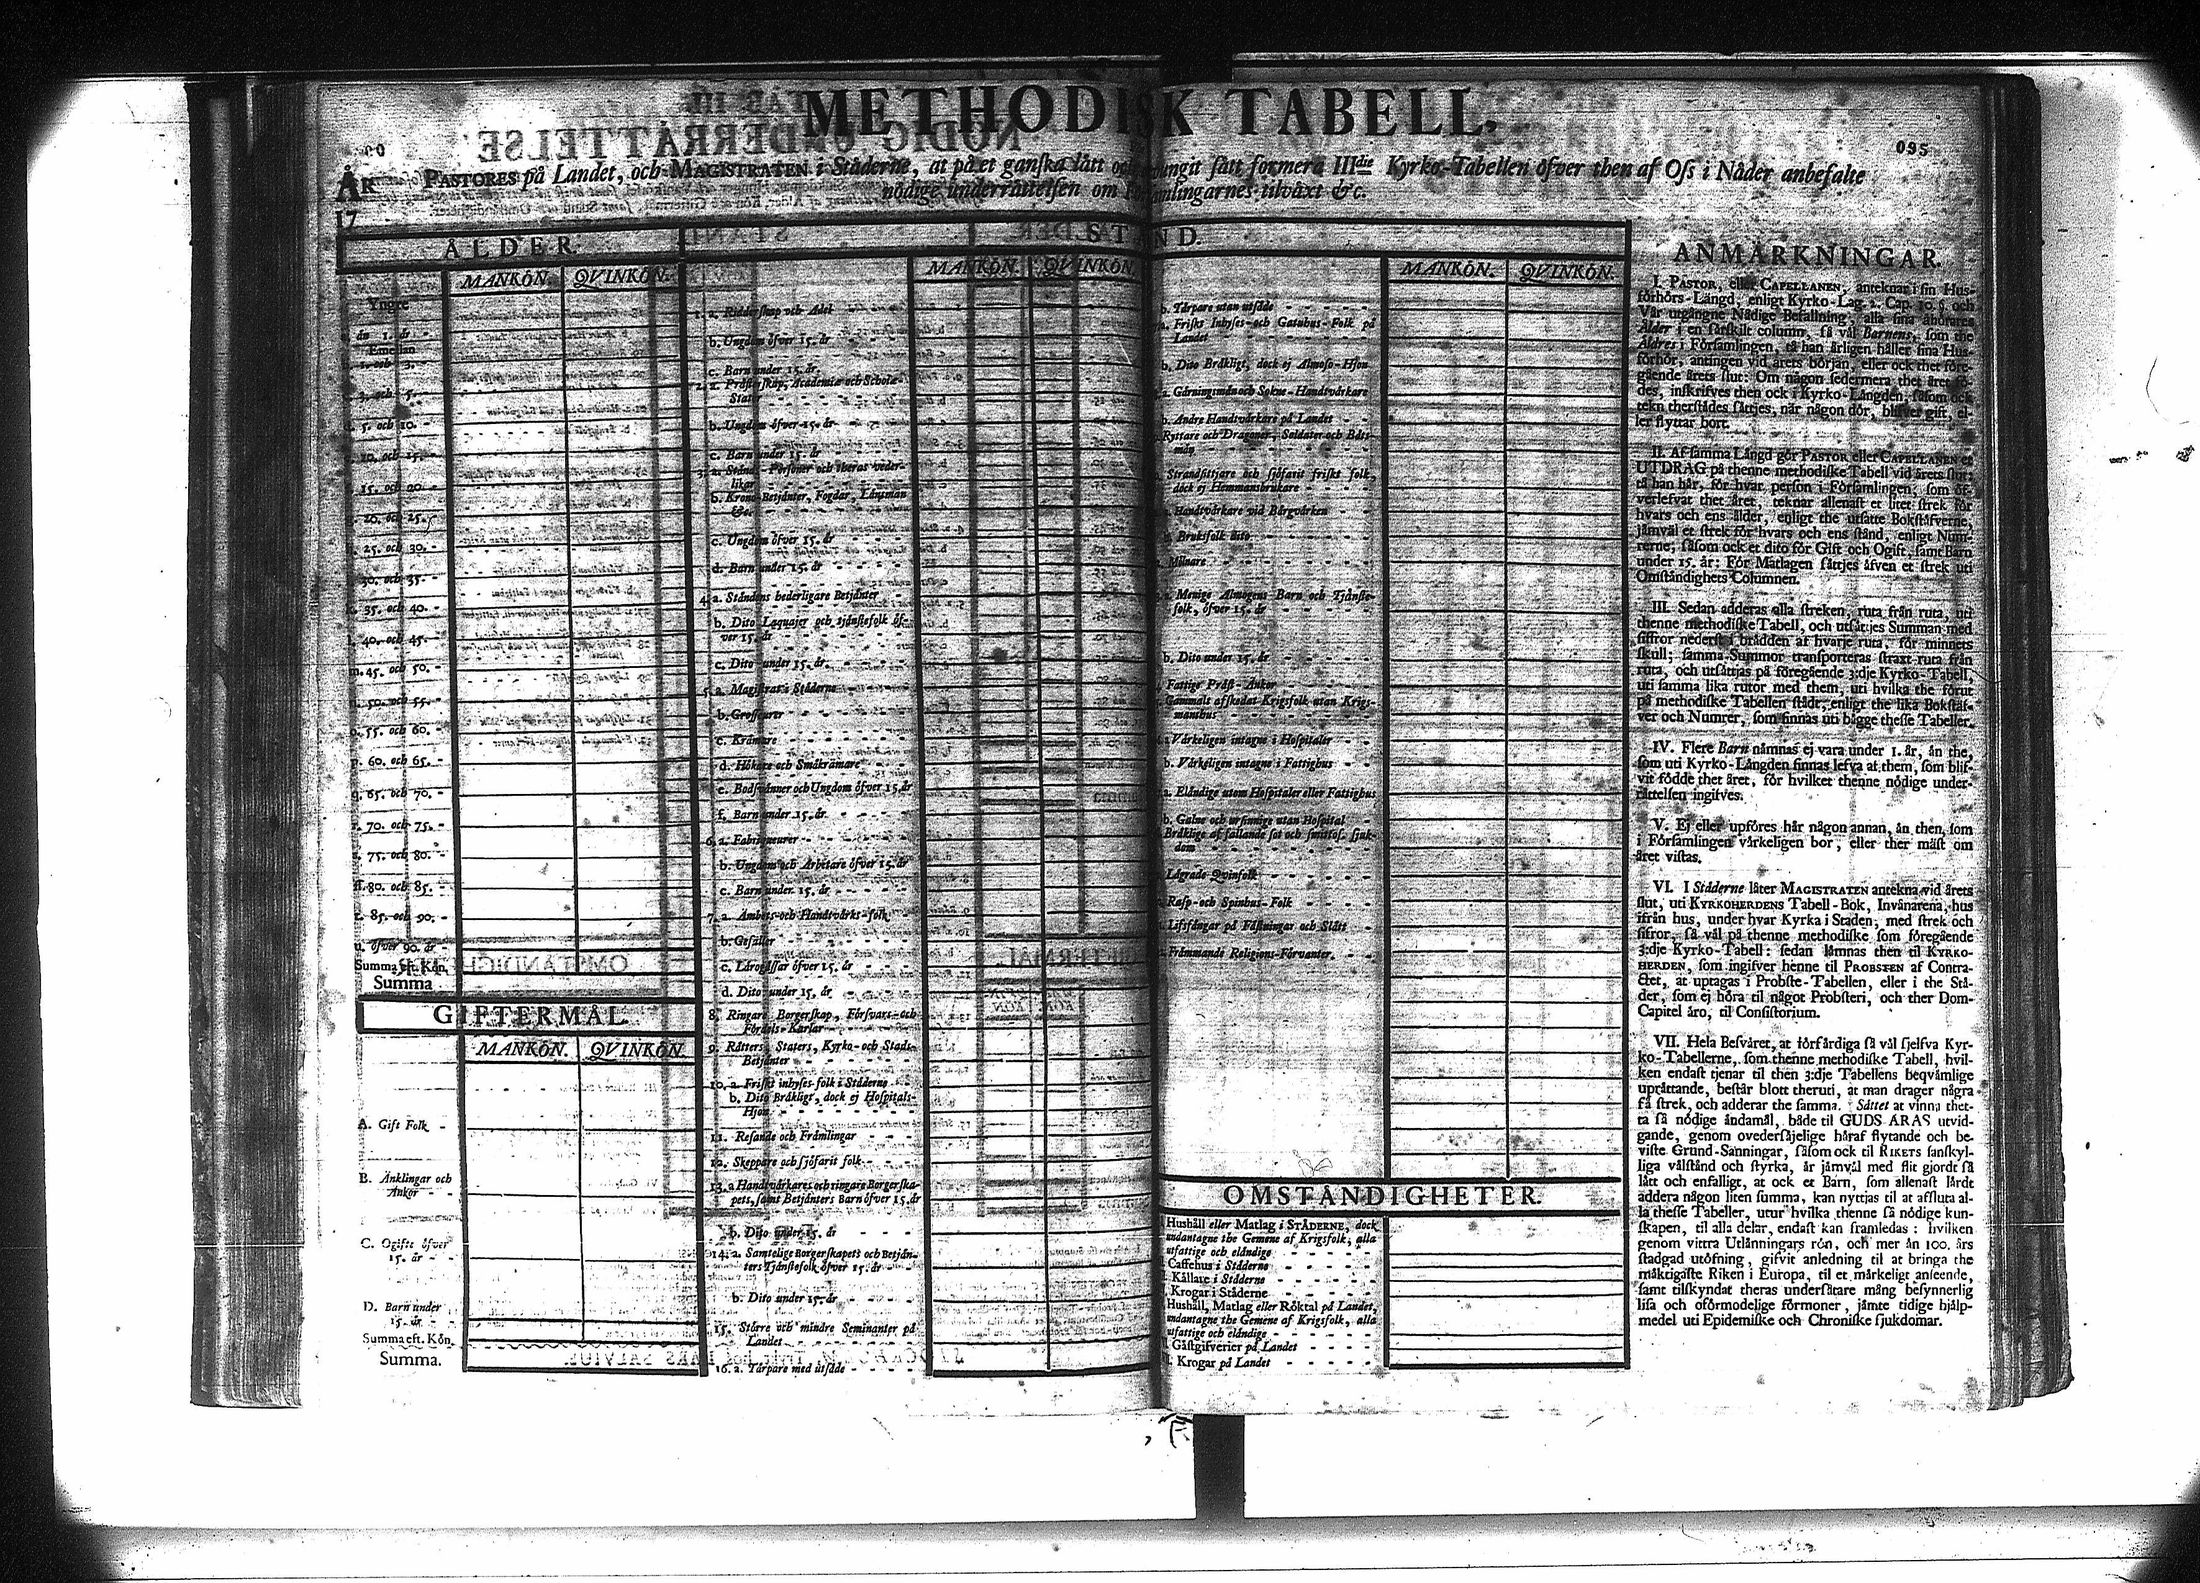 METHODISK TABELL.
095
ÅR
17
PASTORES på Landet, och MAGISTRATEN i Städerne, at på et ganska lätt och tvungit sätt formera IIIdie Kyrko-Tabellen öfver then af Oss i Nåder anbefalte
nödige underrättelsen om Församlingarnes tilväxt &c.
ÅLDER.
MANKÖN. QVINKÖN.
Yngre
än 1. år
Emellan
1. och 3.
3. och 5.
5. och 10.
10. och 15.
15. och 20.
20. och 25.
25. och 30.
30. och 35.
35. och 40.
40. och 45.
m. 45. och 50.
n. 50. och 55.
o. 55. och 60.
p. 60. och 65.
q. 65. och 70.
r. 70. och 75.
s. 75. och 80.
80. och 85.
t. 85. och 90.
u. öfver 90. år
Summa eft. Kön.
Summa
GIFTERMÅL.
MANKÖN. QVINKÖN.
A. Gift Folk
B. Änklingar och
Änkor
C. Ogifte öfver
15. år
D. Barn under
15. år
Summa eft. Kön.
Summa.
STÅND.
MANKÖN. QVINKÖN.
1. a. Ridderskap och Adel
b. Ungdom öfver 15. år
c. Barn under 15. år.
2. a. Prästerskap, Academiæ och Scholæ-
Stater
b. Ungdom öfver 15. år
c. Barn under 15. år
3. a. Stånds-Personer och theras veder-
likar
b. Krono-Betjänter, Fogdar, Länsmän
&c.
c. Ungdom öfver 15. år
d. Barn under 15. år
4. a. Ståndens hederligare Betjänter
b. Dito Laquajer och tjänstefolk öf-
ver 15. år
c. Dito under 15. år.
5. a. Magistrat i Städerne
b. Grosseurer
c. Krämare
d. Hökare och Småkrämare
e. Bodsvänner och Ungdom öfver 15. år
f. Barn under 15. år.
6. a. Fabriqueurer
b. Ungdom och Arbetare öfver 15. år
c. Barn under 15. år
7. a. Ämbets-och Handtvärks-folk
b. Gesäller
c. Lärogåssar öfver 15. år
d. Dito under 15. år
8. Ringare Borgerskap, Försvars-och
Fördels-Karlar
9. Rätters, Staters, Kyrko-och Stads-
Betjänter
10. a. Friskt inhyses-folk i Städerne
b. Dito Bräkligt, dock ej Hospitals-
Hjon
11. Resande och Främlingar
12. Skeppare och sjöfarit folk
13. a Handtvärkares och ringare Borgerska-
pets, samt Betjänters Barn öfver 15. år
b. Dito under 15. år
14. a. Samtelige Borgerskapets och Betjän-
ters Tjänstefolk öfver 15. år
b. Dito under 15. år
15. Större och mindre Seminanter på
Landet
16. a. Tårpare med utsäde
MANKÖN. QVINKÖN.
b. Tårpare utan utsäde
a. Friskt Inhyses-och Gatuhus-Folk på
Landet
b. Dito Bräkligt, dock ej Almoso-Hjon
a. Gärningsmän och Sokne-Handtvärkare
b. Andre Handtvärkare på Landet
Ryttare och Dragoner, Soldater och Båts-
män
Strandsittjare och sjöfarit friskt folk,
dock ej Hemmansbrukare
Handtvärkare vid Bärgvärken
Bruksfolk dito
Milnare
a. Menige Almogens Barn och Tjänste-
folk, öfver 15. år
b. Dito under 15. år
Fattige Präst-Änkor
Gammalt afskedat Krigsfolk utan Krigs-
manshus
Värkeligen intagne i Hospitaler
b. Värkeligen intagne i Fattighus
a. Eländige utom Hospitaler eller Fattighus
b. Galne och ursinnige utan Hospital
Bräklige af fallande sot och smittos. sjuk-
dom
Lägrade Qvinfolk
Rasp-och Spinhus-Folk
Lifsfångar på Fästningar och Slått
Främmande Religions-Förvanter.
OMSTÄNDIGHETER.
Hushåll eller Matlag i STÄDERNE, dock
undantagne the Gemene af Krigsfolk, alla
utfattige och eländige
Caffehus i Städerne
Källare i Städerne
Krogar i Städerne
Hushåll, Matlag eller Röktal på Landet,
undantagne the Gemene af Krigsfolk, alla
utfattige och eländige
Gästgifverier på Landet
Krogar på Landet
ANMÄRKNINGAR.
I. PASTOR, eller CAPELLANEN, anteknar i sin Hus-
förhörs-Längd, enligt Kyrko-Lag. 2. Cap. 10. §. och
Vår utgångne Nådige Befallning, alla sina åhörares
Ålder i en särskilt column, så väl Barnens, som the
Äldres i Församlingen, tå han årligen håller sina Hus-
förhör, antingen vid årets början, eller ock thet före-
gående årets slut: Om någon sedermera thet året fö-
des, inskrifves then ock i Kyrko-Längden, såsom ock
tekn therstädes sättjes, när någon dör, blifver gift, el-
ler flyttar bort.
II. Af samma Längd gör PASTOR eller CAPELLANEN et
UTDRAG på thenne methodiske Tabell vid årets slut:
tå han här, för hvar person i Församlingen, som öf-
verlefvat thet året, teknar allenast et litet strek för
hvars och ens ålder, enligt the utsatte Bokstäfverne,
jämväl et strek för hvars och ens stånd, enligt Num-
rerne, såsom ock et dito för Gift och Ogift, samt Barn
under 15. år: För Matlagen sättjes äfven et strek uti
Omständighets Columnen.
III. Sedan adderas alla streken, ruta från ruta, uti
thenne methodiske Tabell, och utsättjes Summan med
siffror nederst i brädden af hvarje ruta, för minnets
skull; samma Summor transporteras straxt ruta från
ruta, och utsättjas på föregående 3:dje Kyrko-Tabell,
uti samma lika rutor med them, uti hvilka the förut
på methodiske Tabellen stådt, enligt the lika Bokstäf-
ver och Numrer, som finnas uti bägge thesse Tabeller.
IV. Flere Barn nämnas ej vara under 1. år, än the,
som uti Kyrko-Längden finnas lefva af them, som blif-
vit födde thet året, för hvilket thenne nödige under-
rättelsen ingifves.
V. Ej eller upföres här någon annan, än then, som
i Församlingen värkeligen bor, eller ther mäst om
året vistas.
VI. I Städerne låter MAGISTRATEN antekna vid årets
slut, uti KYRKOHERDENS Tabell-Bok, Invånarena, hus
ifrån hus, under hvar Kyrka i Staden, med strek och
sifror, så väl på thenne methodiske som föregående
3:dje Kyrko-Tabell: sedan lämnas then til KYRKO-
HERDEN, som ingifver henne til PROBSTEN af Contra-
ctet, at uptagas i Probste-Tabellen, eller i the Stä-
der, som ej höra til något Probsteri, och ther Dom-
Capitel äro, til Consistorium.
VII. Hela Besväret, at förfärdiga så väl sjelfva Kyr-
ko-Tabellerne, som thenne methodiske Tabell, hvil-
ken endast tjenar til then 3:dje Tabellens beqvämlige
uprättande, består blott theruti, at man drager några
få strek, och adderar the samma. Sättet at vinna thet-
ta så nödige ändamål, både til GUDS ÄRAS utvid-
gande, genom ovedersäjelige häraf flytande och be-
viste Grund-Sanningar, såsom ock til RIKETS sanskyl-
liga välstånd och styrka, är jämväl med flit gjordt så
lätt och enfalligt, at ock et Barn, som allenast lärdt
addera någon liten summa, kan nyttjas til at afsluta al-
la thesse Tabeller, utur hvilka thenne så nödige kun-
skapen, til alla delar, endast kan framledas: hvilken
genom vittra Utlänningars rön, och mer än 100. års
stadgad utöfning, gifvit anledning til at bringa the
mäktigaste Riken i Europa, til et märkeligt anseende,
samt tilskyndat theras undersåtare mång besynnerlig
lisa och oförmodelige förmoner, jämte tidige hjälp-
medel uti Epidemiske och Chroniske sjukdomar.